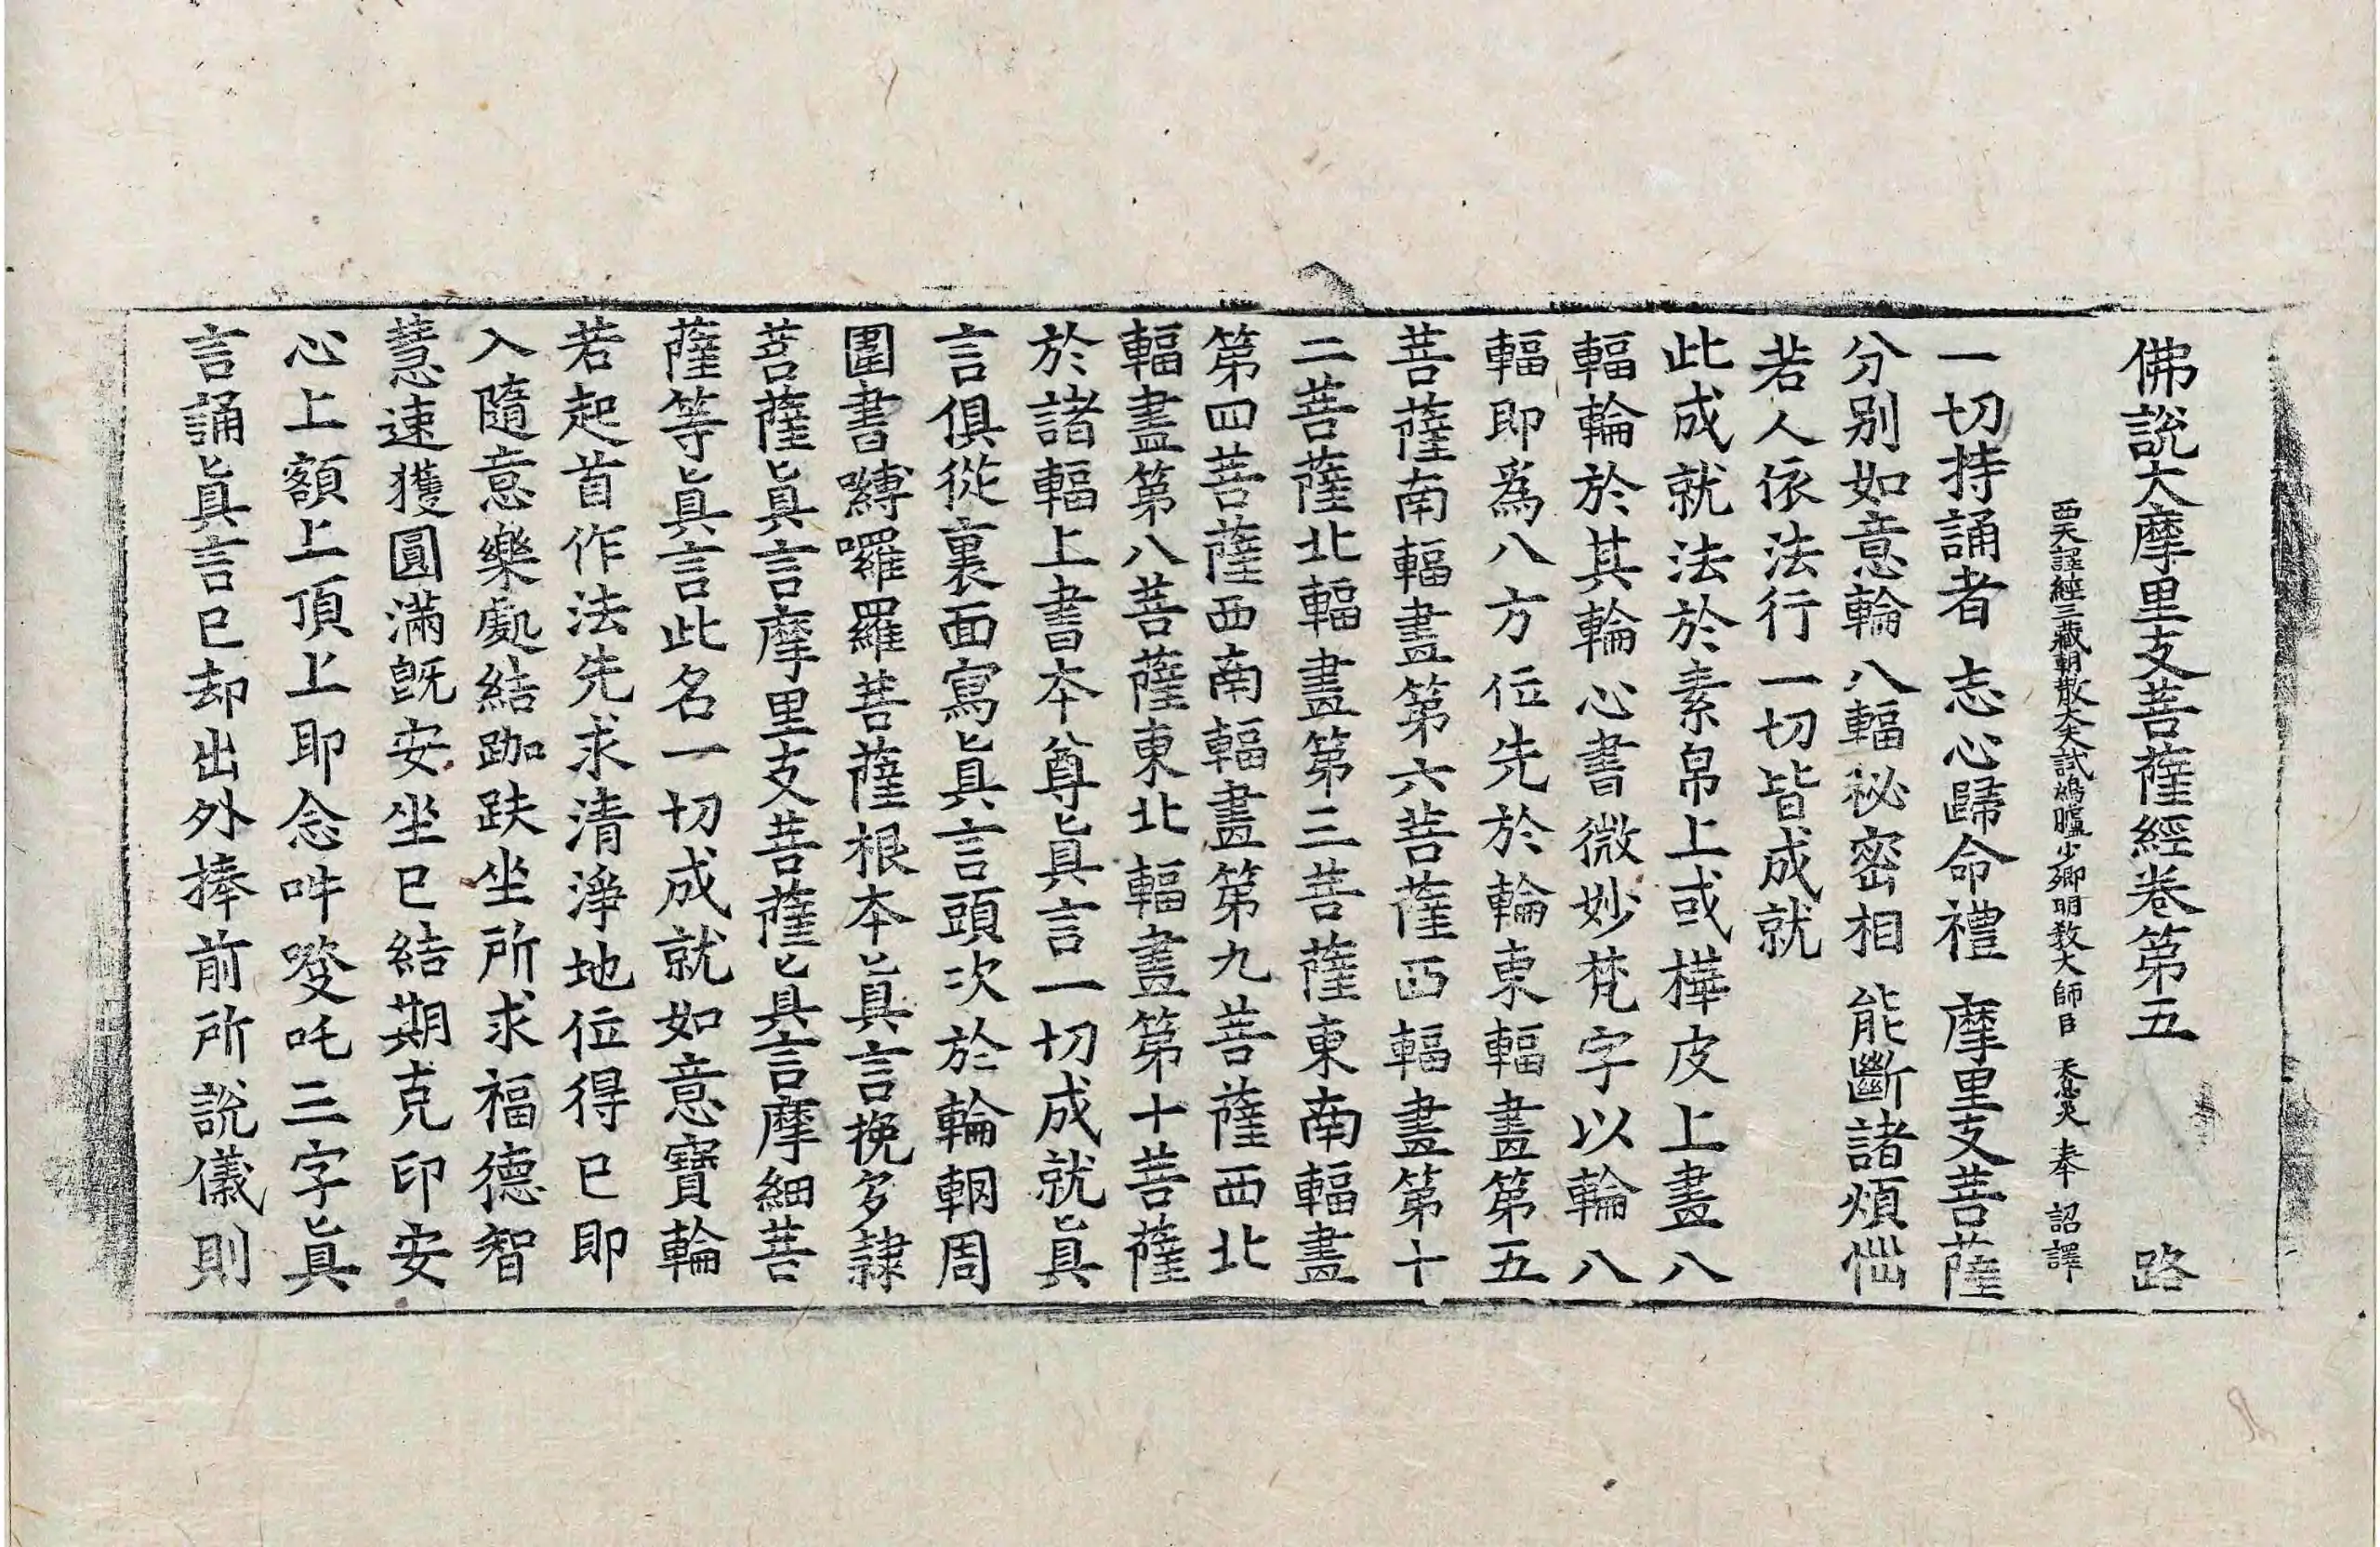 佛說大摩里支菩薩經卷第五 路
西天譯經三藏朝散大夫試鴻臚少卿明教大師臣 天息災 奉 詔譯
一切持誦者 志心歸命禮 摩里支菩薩
分別如意輪 八輻秘密相 能斷諸煩惱
若人依法行 一切皆成就
此成就法於素帛上或樺皮上畫八
輻輪於其輪心書微妙梵字以輪八
輻即爲八方位先於輪東輻畫第五
菩薩南輻畫第六菩薩西輻畫第十
二菩薩北輻畫第三菩薩東南輻畫
第四菩薩西南輻畫第九菩薩西北
輻畫第八菩薩東北輻畫第十菩薩
於諸輻上書本尊眞言一切成就眞
言俱從裏面寫眞言頭次於輪輞周
圍書嚩囉羅菩薩根本眞言挽多隷
菩薩眞言摩里支菩薩眞言摩細菩
薩等眞言此名一切成就如意寶輪
若起首作法先求清淨地位得已即
入隨意樂處結跏趺坐所求福德智
慧速獲圓滿旣安坐已結期克印安
心上額上頂上即念吽𠺁吒三字眞
言誦眞言已却出外捧前所說儀則